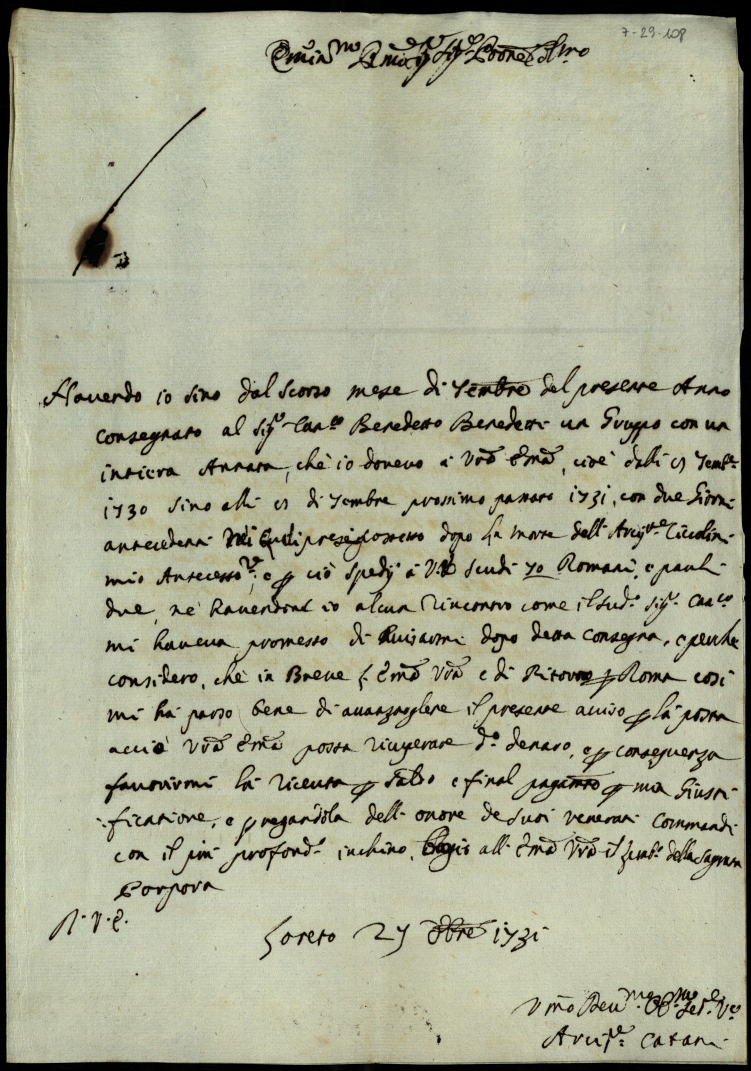 7-29-108
Emin.mo R.mo Sig.r Sig.r Pron.e Col.mo
Havendo io sino dal scorso mese di 7embre del presente Anno
consegnato al Sig.r Can.co Benedetto Benedetti un Gruppo con un
intiera Annata, che io dovevo à Vrã Emã, cioè dalli 7emb.e
1730 sino alli di 7embre prossimo passato 1731, con due Giorni
antecedenti presi possesso dopo la morte dell' Arcip.te Ciccolini
mio Antecess.re, e p ciò spedij à scudi 70 Romani, e pauli
due, nè havendone io alcun rincontro come il sud.o Sig.r Can.co
mi haveva promesso di avisarmi dopo detta consegna, e perche
considero, che in Breve l' Emã Vrã e di Ritorno p Roma così
mi hà parso bene di avanzargliene il presente aviso p la posta
acciò Vrã Emã possa ricuperare d.o denaro, e p conseguenza
favorirmi la ricevuta p saldo e final pagamto p mia Giusti
ficatione, e pregandola dell' onore de suoi venerati Commandi
con il più profond.o inchino, Bagio all' Emã Vrã il Lemb.o della Sagrata
Porpora
Loreto 27 8bre 1731
Vmo Dev.mo Obl.mo Se.re V.o
Arcip.te Catani